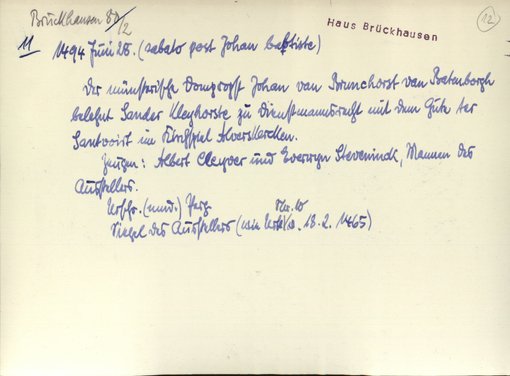 Brückhausen 80/2
Haus Brückhausen
12
11
1494 Juni 28. (sabato post Johan baptiste)
Der münsterische Dompropst Johan van Brunchorst van Batenborgh
belehnt Sander Kleyhorste zu Dienstmannsrecht mit dem Gute ter
Santvoirt im Kirchspiel Alverskerken.
Zeugen: Albert Cleyver und Everwyn Steveninck, Mannen des
Ausstellers.
Urschr. (mnd.) Perg.
Siegel des Ausstellers (wie Urk. Nr. 10 v. 18.2. 1465)